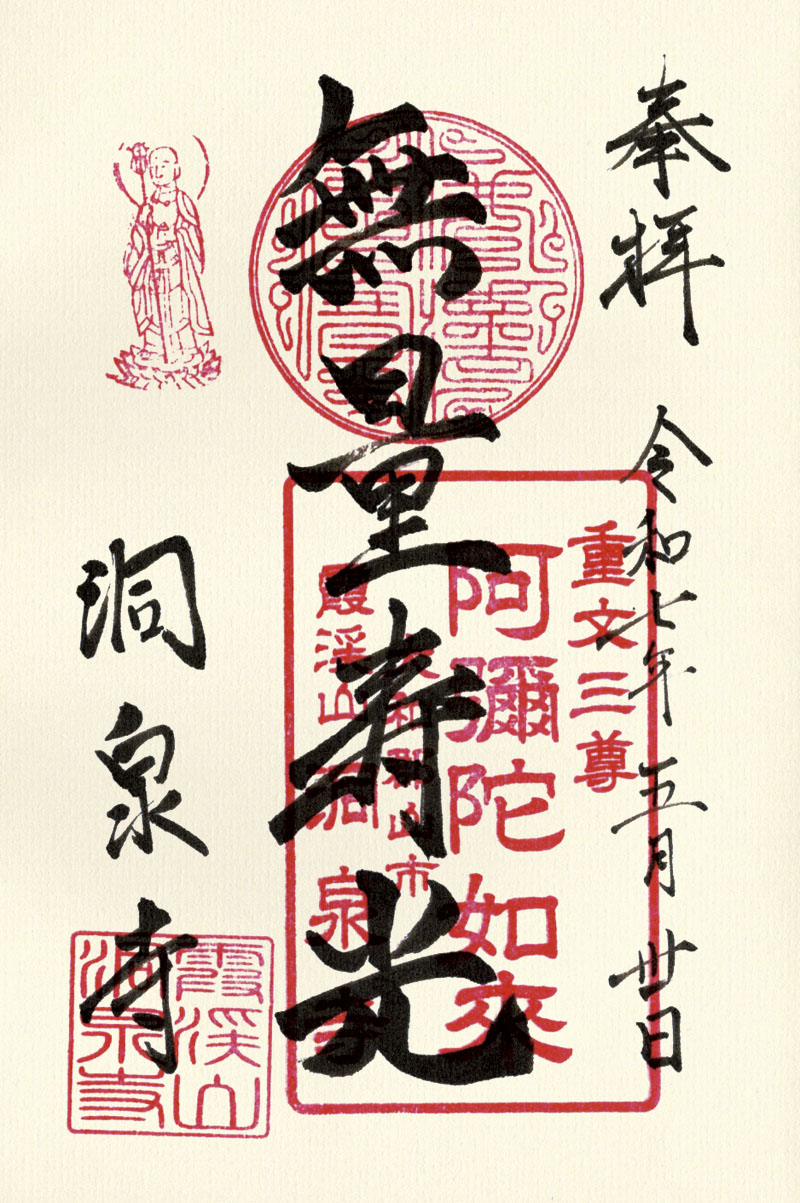 奉拝 令和七年五月卅日
重文三尊
阿彌陀如來
大和郡山市
霞渓山 洞泉寺
無量寿光
洞泉寺
霞渓山
洞泉寺